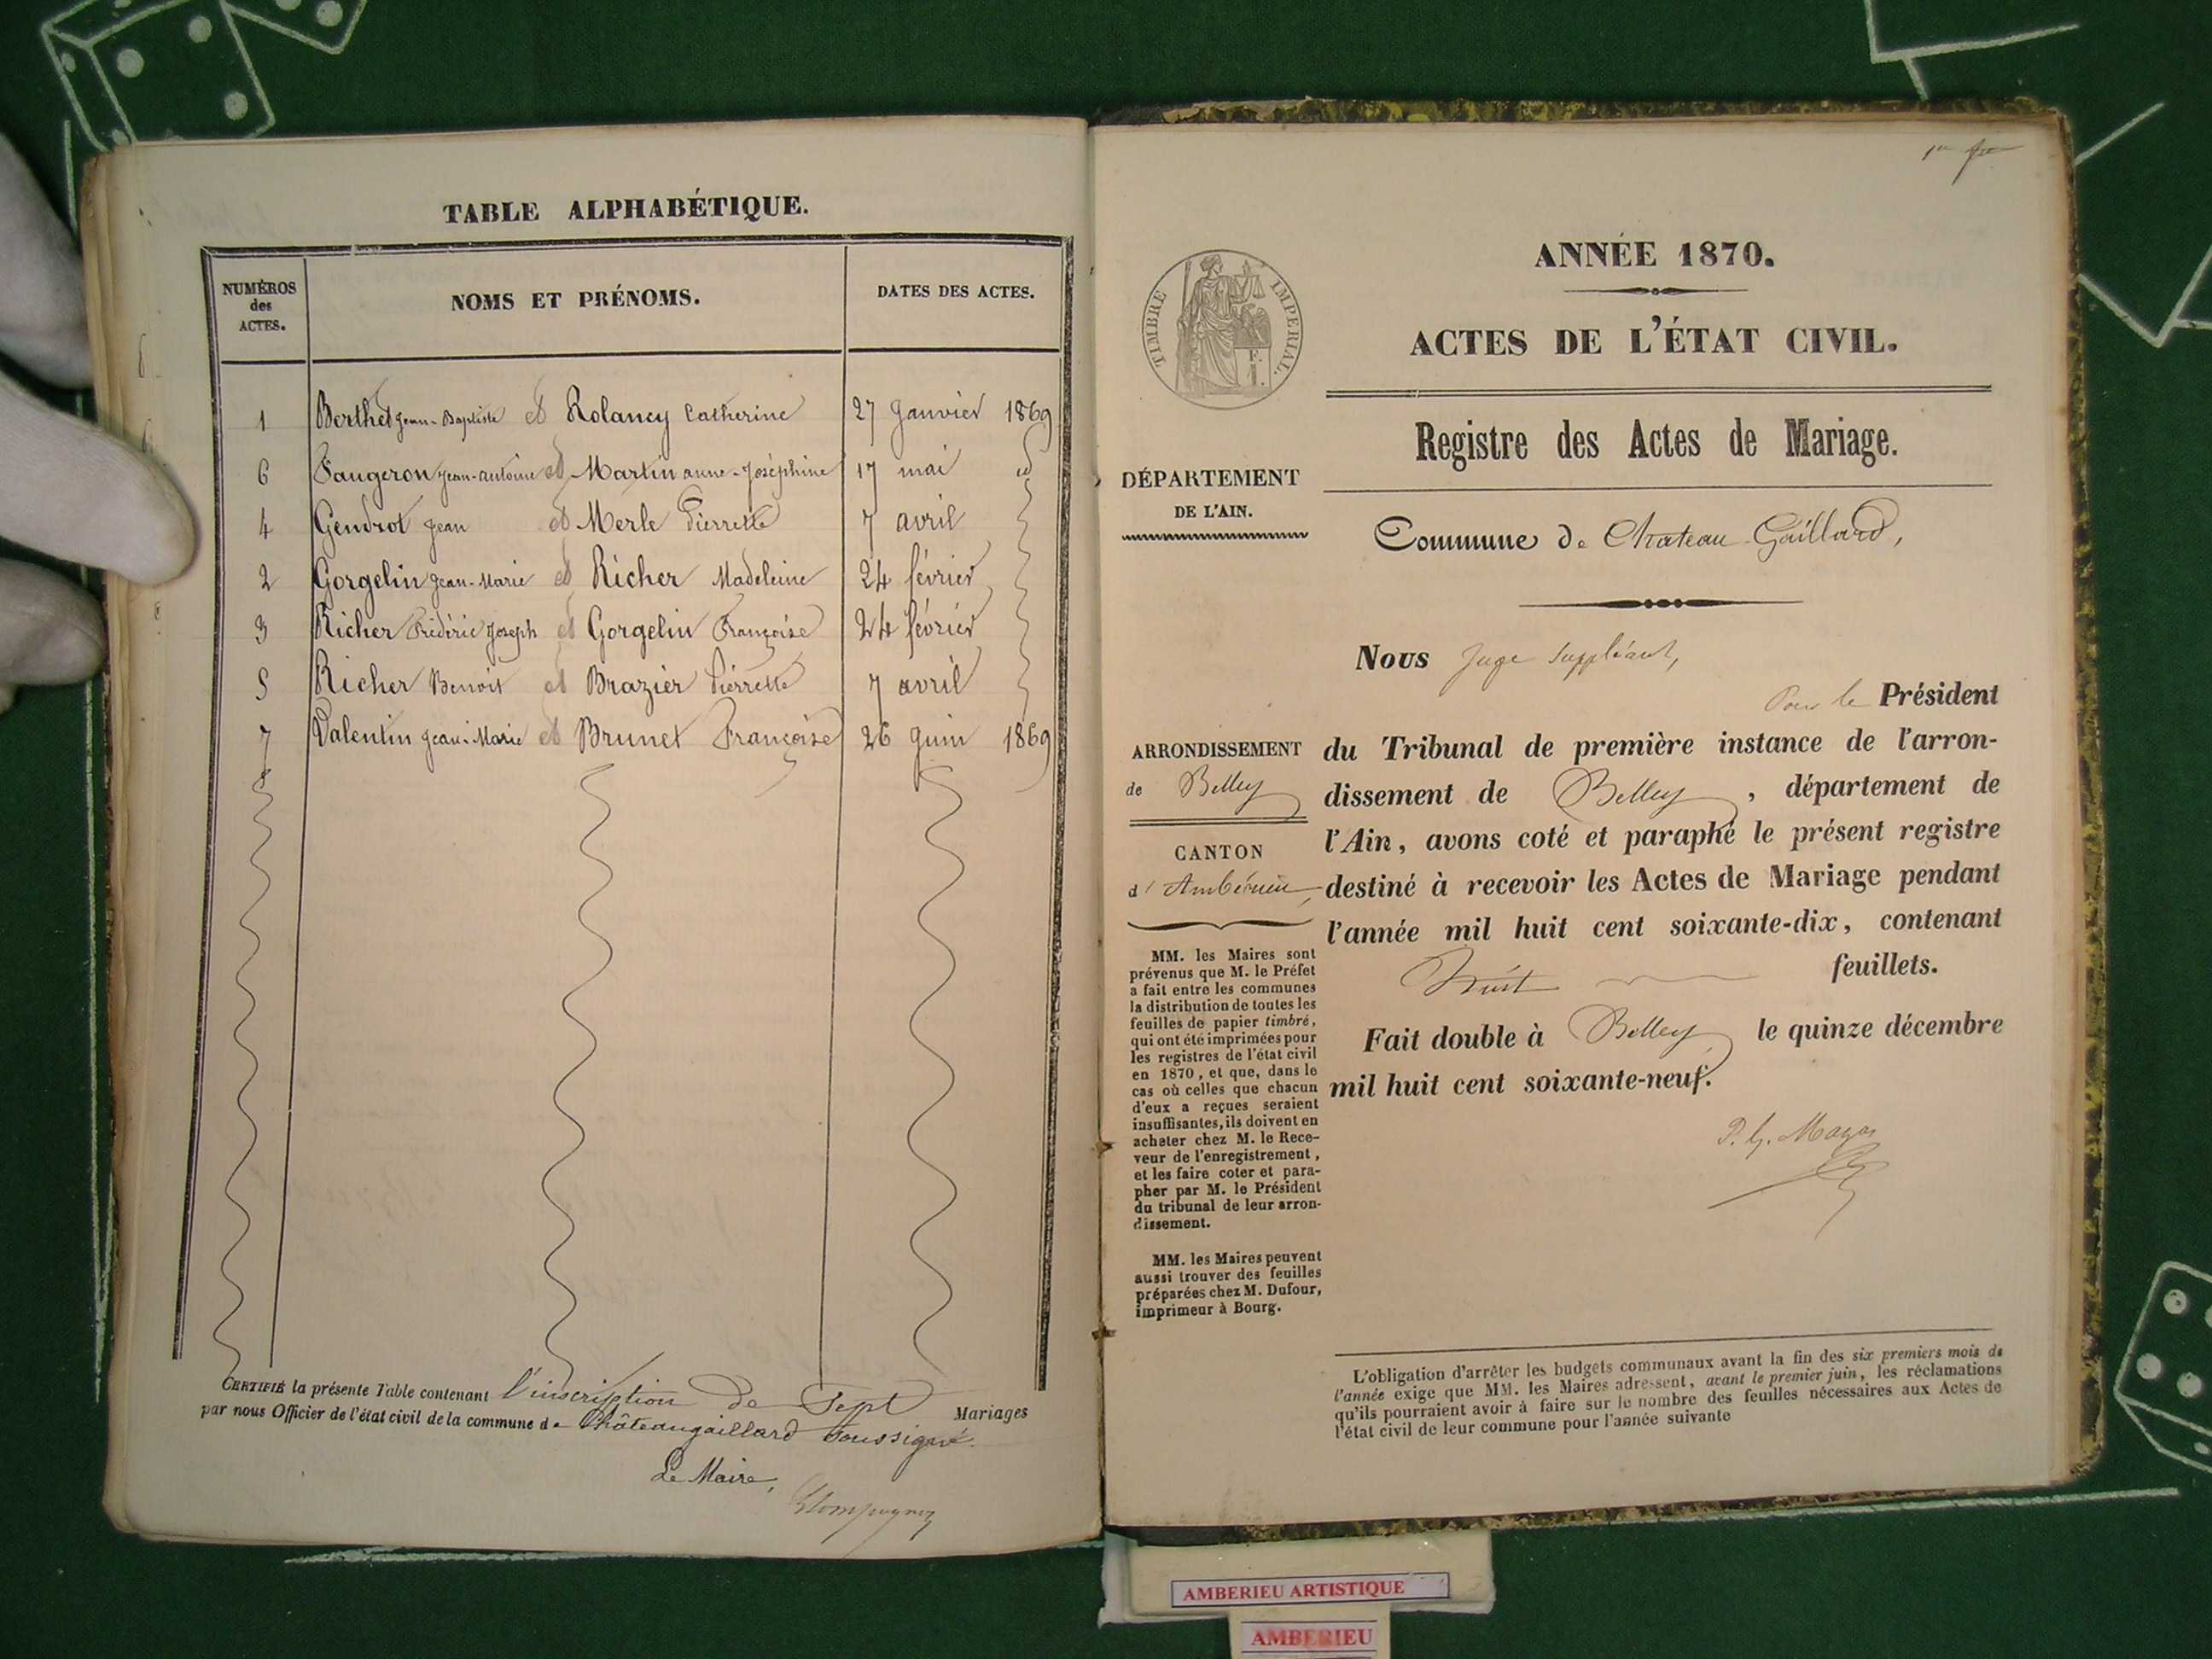 TABLE ALPHABÉTIQUE.
NUMÉROS des ACTES. NOMS ET PRÉNOMS. DATES DES ACTES.
1 Berthet Jean-Baptiste et Rolancy Catherine 27 Janvier 1869
6 Faugeron Jean-antoine et Martin anne-Joséphine 17 mai id
4 Gendrot Jean et Merle Pierrette 7 avril
2 Gorgelin Jean-Marie et Richer Madeleine 24 février
3 Richer Frédéric Joseph et Gorgelin Françoise 24 février
5 Richer Benoit et Brazier Pierrette 7 avril
7 Valentin Jean-Marie et Brunet Françoise 26 Juin 1869
CERTIFIÉ la présente Table contenant l'inscription de Sept Mariages
par nous Officier de l'état civil de la commune de Châteaugaillard Soussigné.
Le Maire,
ANNÉE 1870.
ACTES DE L'ÉTAT CIVIL.
TIMBRE IMPERIAL.
Registre des Actes de Mariage.
DÉPARTEMENT
DE L'AIN.
Commune de Chateau-Gaillard,
Nous Juge Suppléant,
Pour le Président
du Tribunal de première instance de l'arron-
dissement de Belley, département de
l'Ain, avons coté et paraphé le présent registre
destiné à recevoir les Actes de Mariage pendant
l'année mil huit cent soixante-dix, contenant
Huit feuillets.
Fait double à Belley le quinze décembre
mil huit cent soixante-neuf.
ARRONDISSEMENT
de Belley
CANTON
d'Ambérieu
MM. les Maires sont
prévenus que M. le Préfet
a fait entre les communes
la distribution de toutes les
feuilles de papier timbré,
qui ont été imprimées pour
les registres de l'état civil
en 1870, et que, dans le
cas où celles que chacun
d'eux a reçues seraient
insuffisantes, ils doivent en
acheter chez M. le Rece-
veur de l'enregistrement,
et les faire coter et para-
pher par M. le Président
du tribunal de leur arron-
dissement.
MM. les Maires peuvent
aussi trouver des feuilles
préparées chez M. Dufour,
imprimeur à Bourg.
L'obligation d'arrêter les budgets communaux avant la fin des six premiers mois de
l'année exige que MM. les Maires adressent, avant le premier juin, les réclamations
qu'ils pourraient avoir à faire sur le nombre des feuilles nécessaires aux Actes de
l'état civil de leur commune pour l'année suivante
AMBERIEU ARTISTIQUE
AMBERIEU